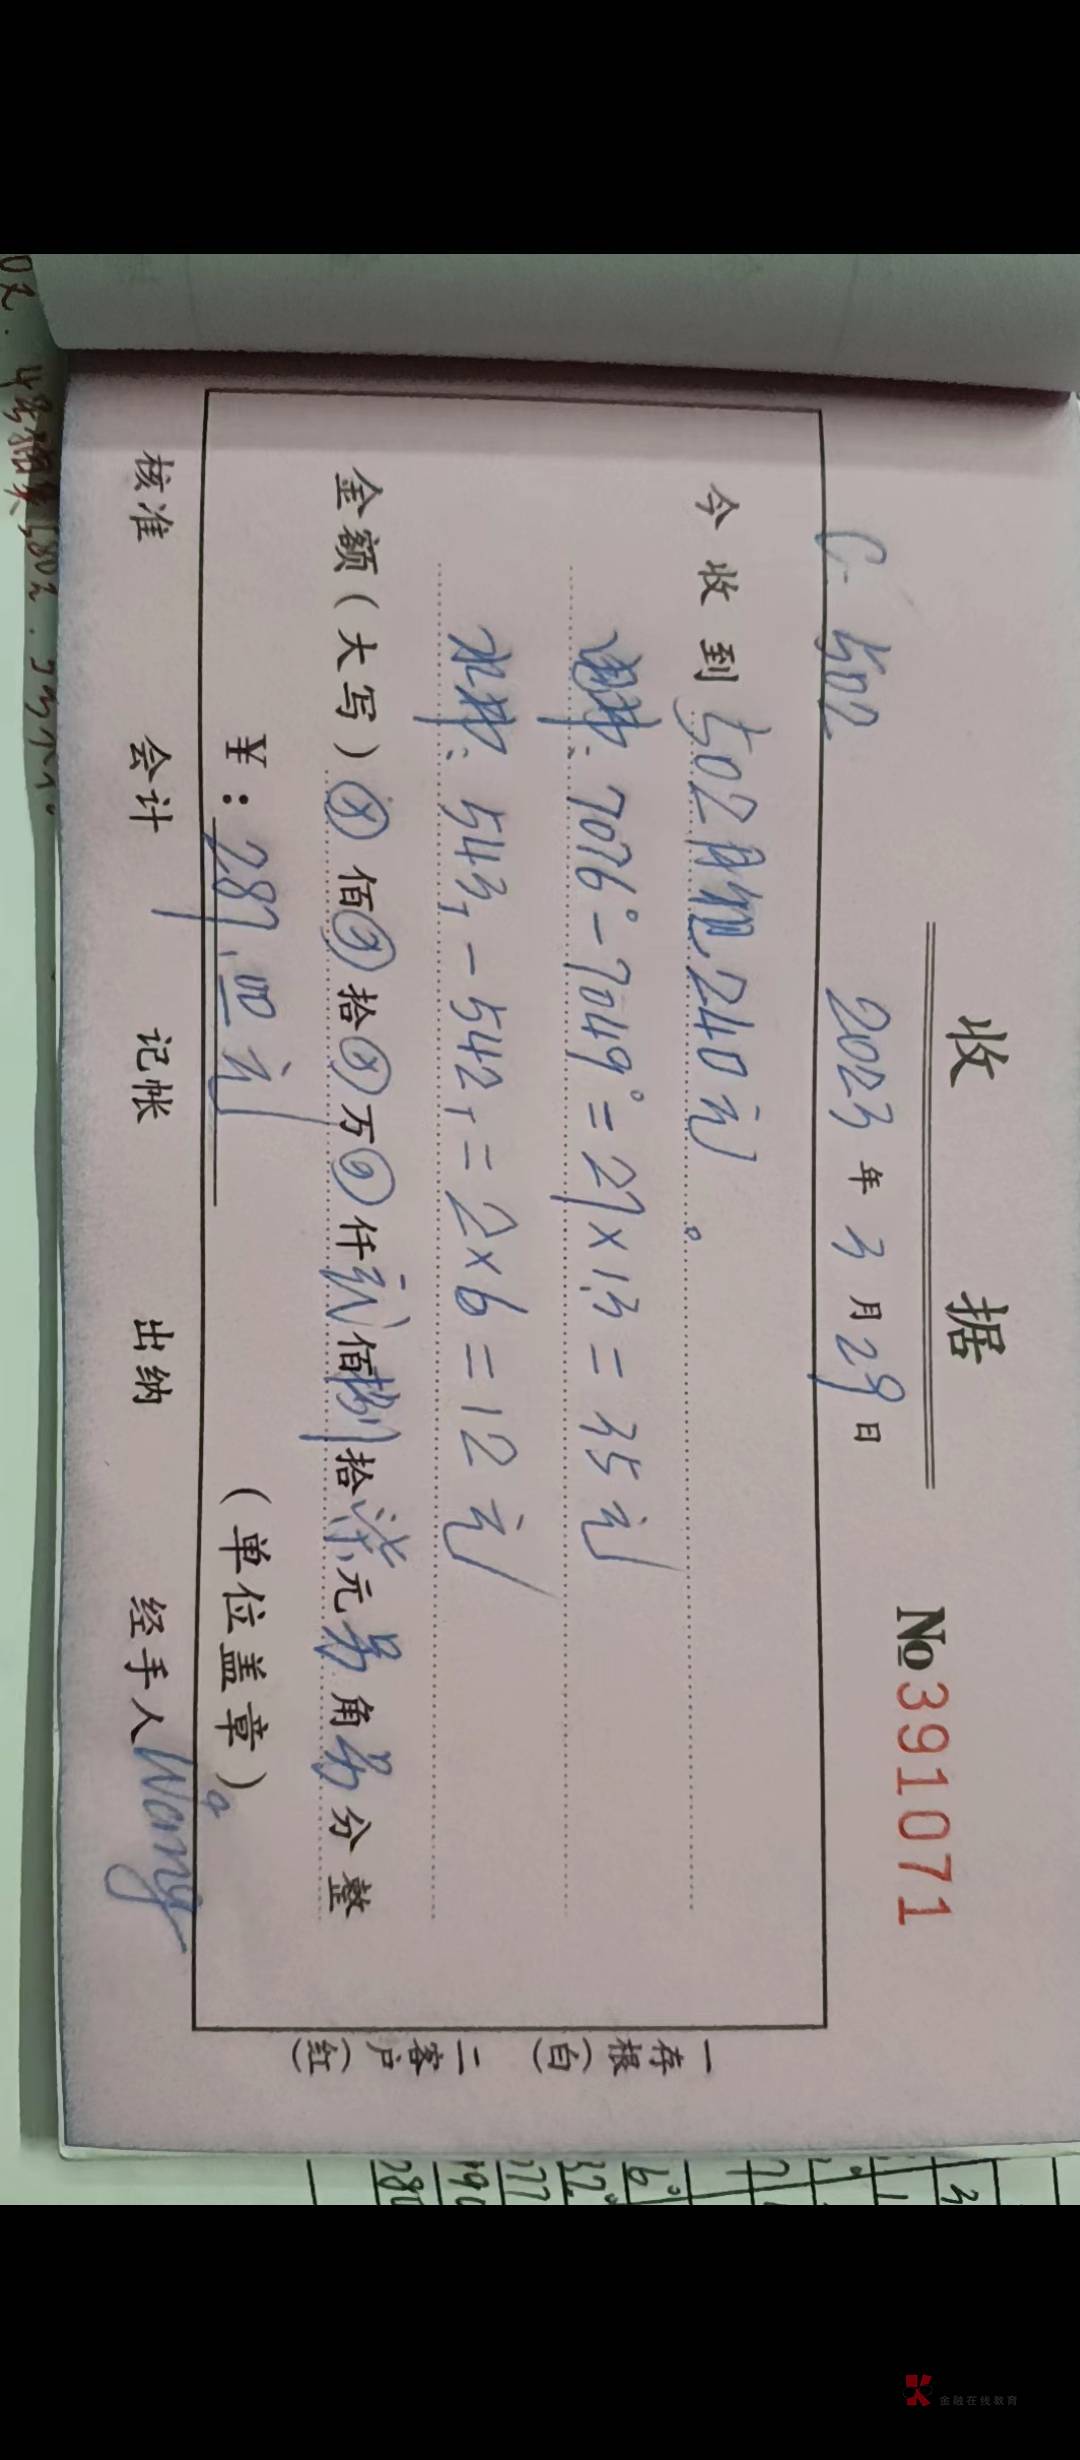 收 据
№391071
C-502
2023年3月29日
今收到 502房租240元。
电费: 7076°-7049°=27×1.3=35元
水费: 543T-542T=2×6=12元
金额(大写)⊗佰⊗拾⊗万⊗仟贰佰捌拾柒元另角另分整
¥:287.00元
(单位盖章)
核准 会计 记帐 出纳 经手人Wang
一存根(白) 二客户(红)
金融在线教育